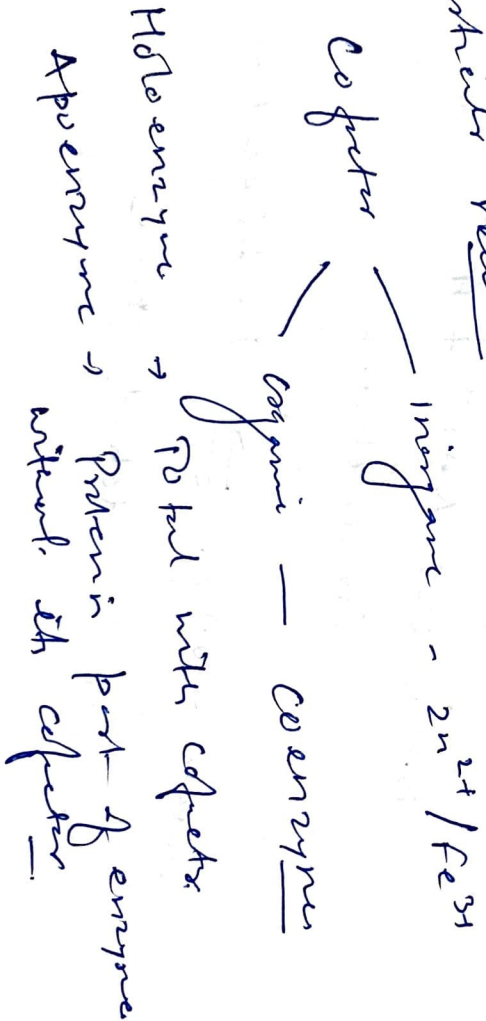 Cofactor
Inorganic - Zn²⁺/Fe³⁺
Organic — Coenzymes
Holoenzyme → Total with cofactor
Apoenzyme → Protein part of enzyme
without its cofactor